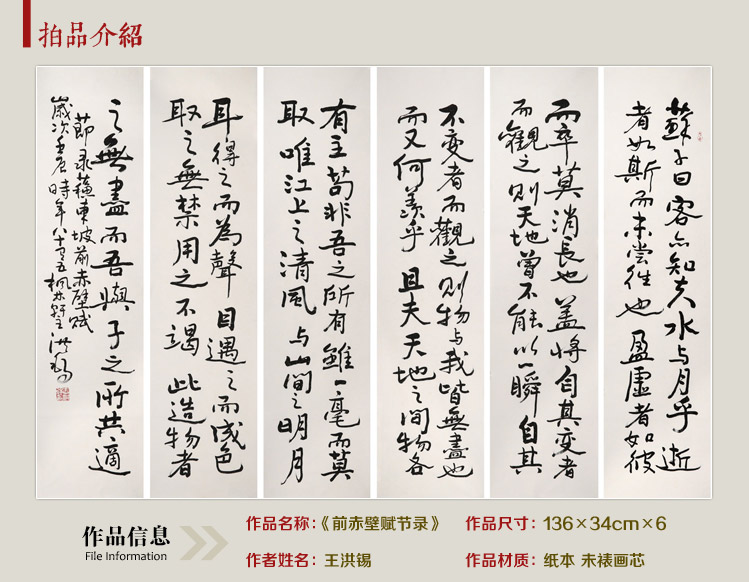 拍品介紹
蘇子曰客亦知夫水与月乎逝
者如斯而未嘗往也盈虛者如彼
而卒莫消長也盖將自其变者
而觀之则天地曾不能以一瞬自其
不变者而觀之则物与我皆無盡也
而又何羨乎且夫天地之间物各
有主苟非吾之所有雖一毫而莫
取唯江上之清風与山间之明月
耳得之而為聲目遇之而成色
取之無禁用之不竭此造物者
之無盡而吾與子之所共適
節录蘇東坡前赤壁赋
歲次壬辰時年八十又五楓林王洪锡
作品信息
File Information
作品名称：《前赤壁赋节录》 作品尺寸：136×34cm×6
作者姓名：王洪锡 作品材质：纸本 未裱画芯